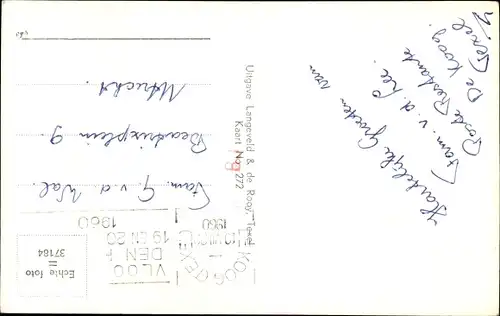 Hartelijke Groeten van
Fam. v. d. Lee.
Posde Restante
De Koog
Texel
Fam. G. v. d Wal.
Beatrixplein 9.
Utrecht.
Uitgave Langeveld & de Rooy, Texel
Kaart No. 272
Echte foto
37184
KOOG (TEXEL)
1960
VLOO
DEN F
19 EN 20
1960